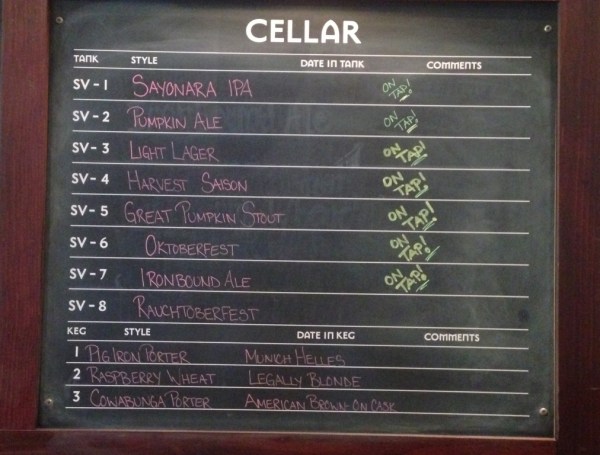 CELLAR
TANK STYLE DATE IN TANK COMMENTS
SV-1 SAYONARA IPA ON TAP!
SV-2 PUMPKIN ALE ON TAP!
SV-3 LIGHT LAGER ON TAP!
SV-4 HARVEST SAISON ON TAP!
SV-5 GREAT PUMPKIN STOUT ON TAP!
SV-6 OKTOBERFEST ON TAP!
SV-7 IRONBOUND ALE ON TAP!
SV-8 RAUCHTOBERFEST
KEG STYLE DATE IN KEG COMMENTS
1 PIG IRON PORTER MUNICH HELLES
2 RASPBERRY WHEAT LEGALLY BLONDE
3 COWABUNGA PORTER AMERICAN BROWN-ON CASK